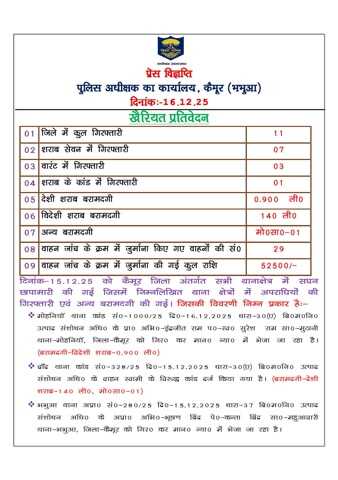 प्रेस विज्ञप्ति
पुलिस अधीक्षक का कार्यालय, कैमूर (भभुआ)
दिनांक:-16.12.25
खैरियत प्रतिवेदन
01 जिले में कुल गिरफ्तारी 11
02 शराब सेवन में गिरफ्तारी 07
03 वारंट में गिरफ्तारी 03
04 शराब के कांड में गिरफ्तारी 01
05 देशी शराब बरामदगी 0.900 ली0
06 विदेशी शराब बरामदगी 140 ली0
07 अन्य बरामदगी मो0सा0-01
08 वाहन जांच के क्रम में जुर्माना किए गए वाहनों की सं0 29
09 वाहन जांच के क्रम में जुर्माना की गई कुल राशि 52500/-
दिनांक-15.12.25 को कैमूर जिला अंतर्गत सभी थानाक्षेत्र में सघन
छापामारी की गई जिसमें निम्नलिखित थाना क्षेत्रों में अपराधियों की
गिरफ्तारी एवं अन्य बरामदगी की गई। जिसकी विवरणी निम्न प्रकार है:-
❖ मोहनियाँ थाना कांड सं0-1000/25 दि0-16.12.2025 धारा-30(ए) बि0म0नि0
उत्पाद संशोधन अधि0 के प्रा0 अभि0-इंद्रजीत राम प0-स्व0 सुरेश राम सा0-मुठानी
थाना-मोहनियाँ, जिला-कैमूर को गिर0 कर मान0 न्या0 में भेजा जा रहा है।
(बरामदगी-विदेशी शराब-0.900 ली0)
❖ चाँद थाना कांड सं0-328/25 दि0-15.12.2025 धारा-30(ए) बि0म0नि0 उत्पाद
संशोधन अधि0 के वाहन स्वामी के विरुद्ध कांड दर्ज किया गया है। (बरामदगी-देशी
शराब-140 ली0, मो0सा0-01)
❖ भभुआ थाना अप्रा0 सं0-280/25 दि0-15.12.2025 धारा-37 बि0म0नि0 उत्पाद
संशोधन अधि0 के अप्रा0 अभि0-भूषण बिंद पे0-कन्ता बिंद सा0-महुआवारी
थाना-भभुआ, जिला-कैमूर को गिर0 कर मान0 न्या0 में भेजा जा रहा है।